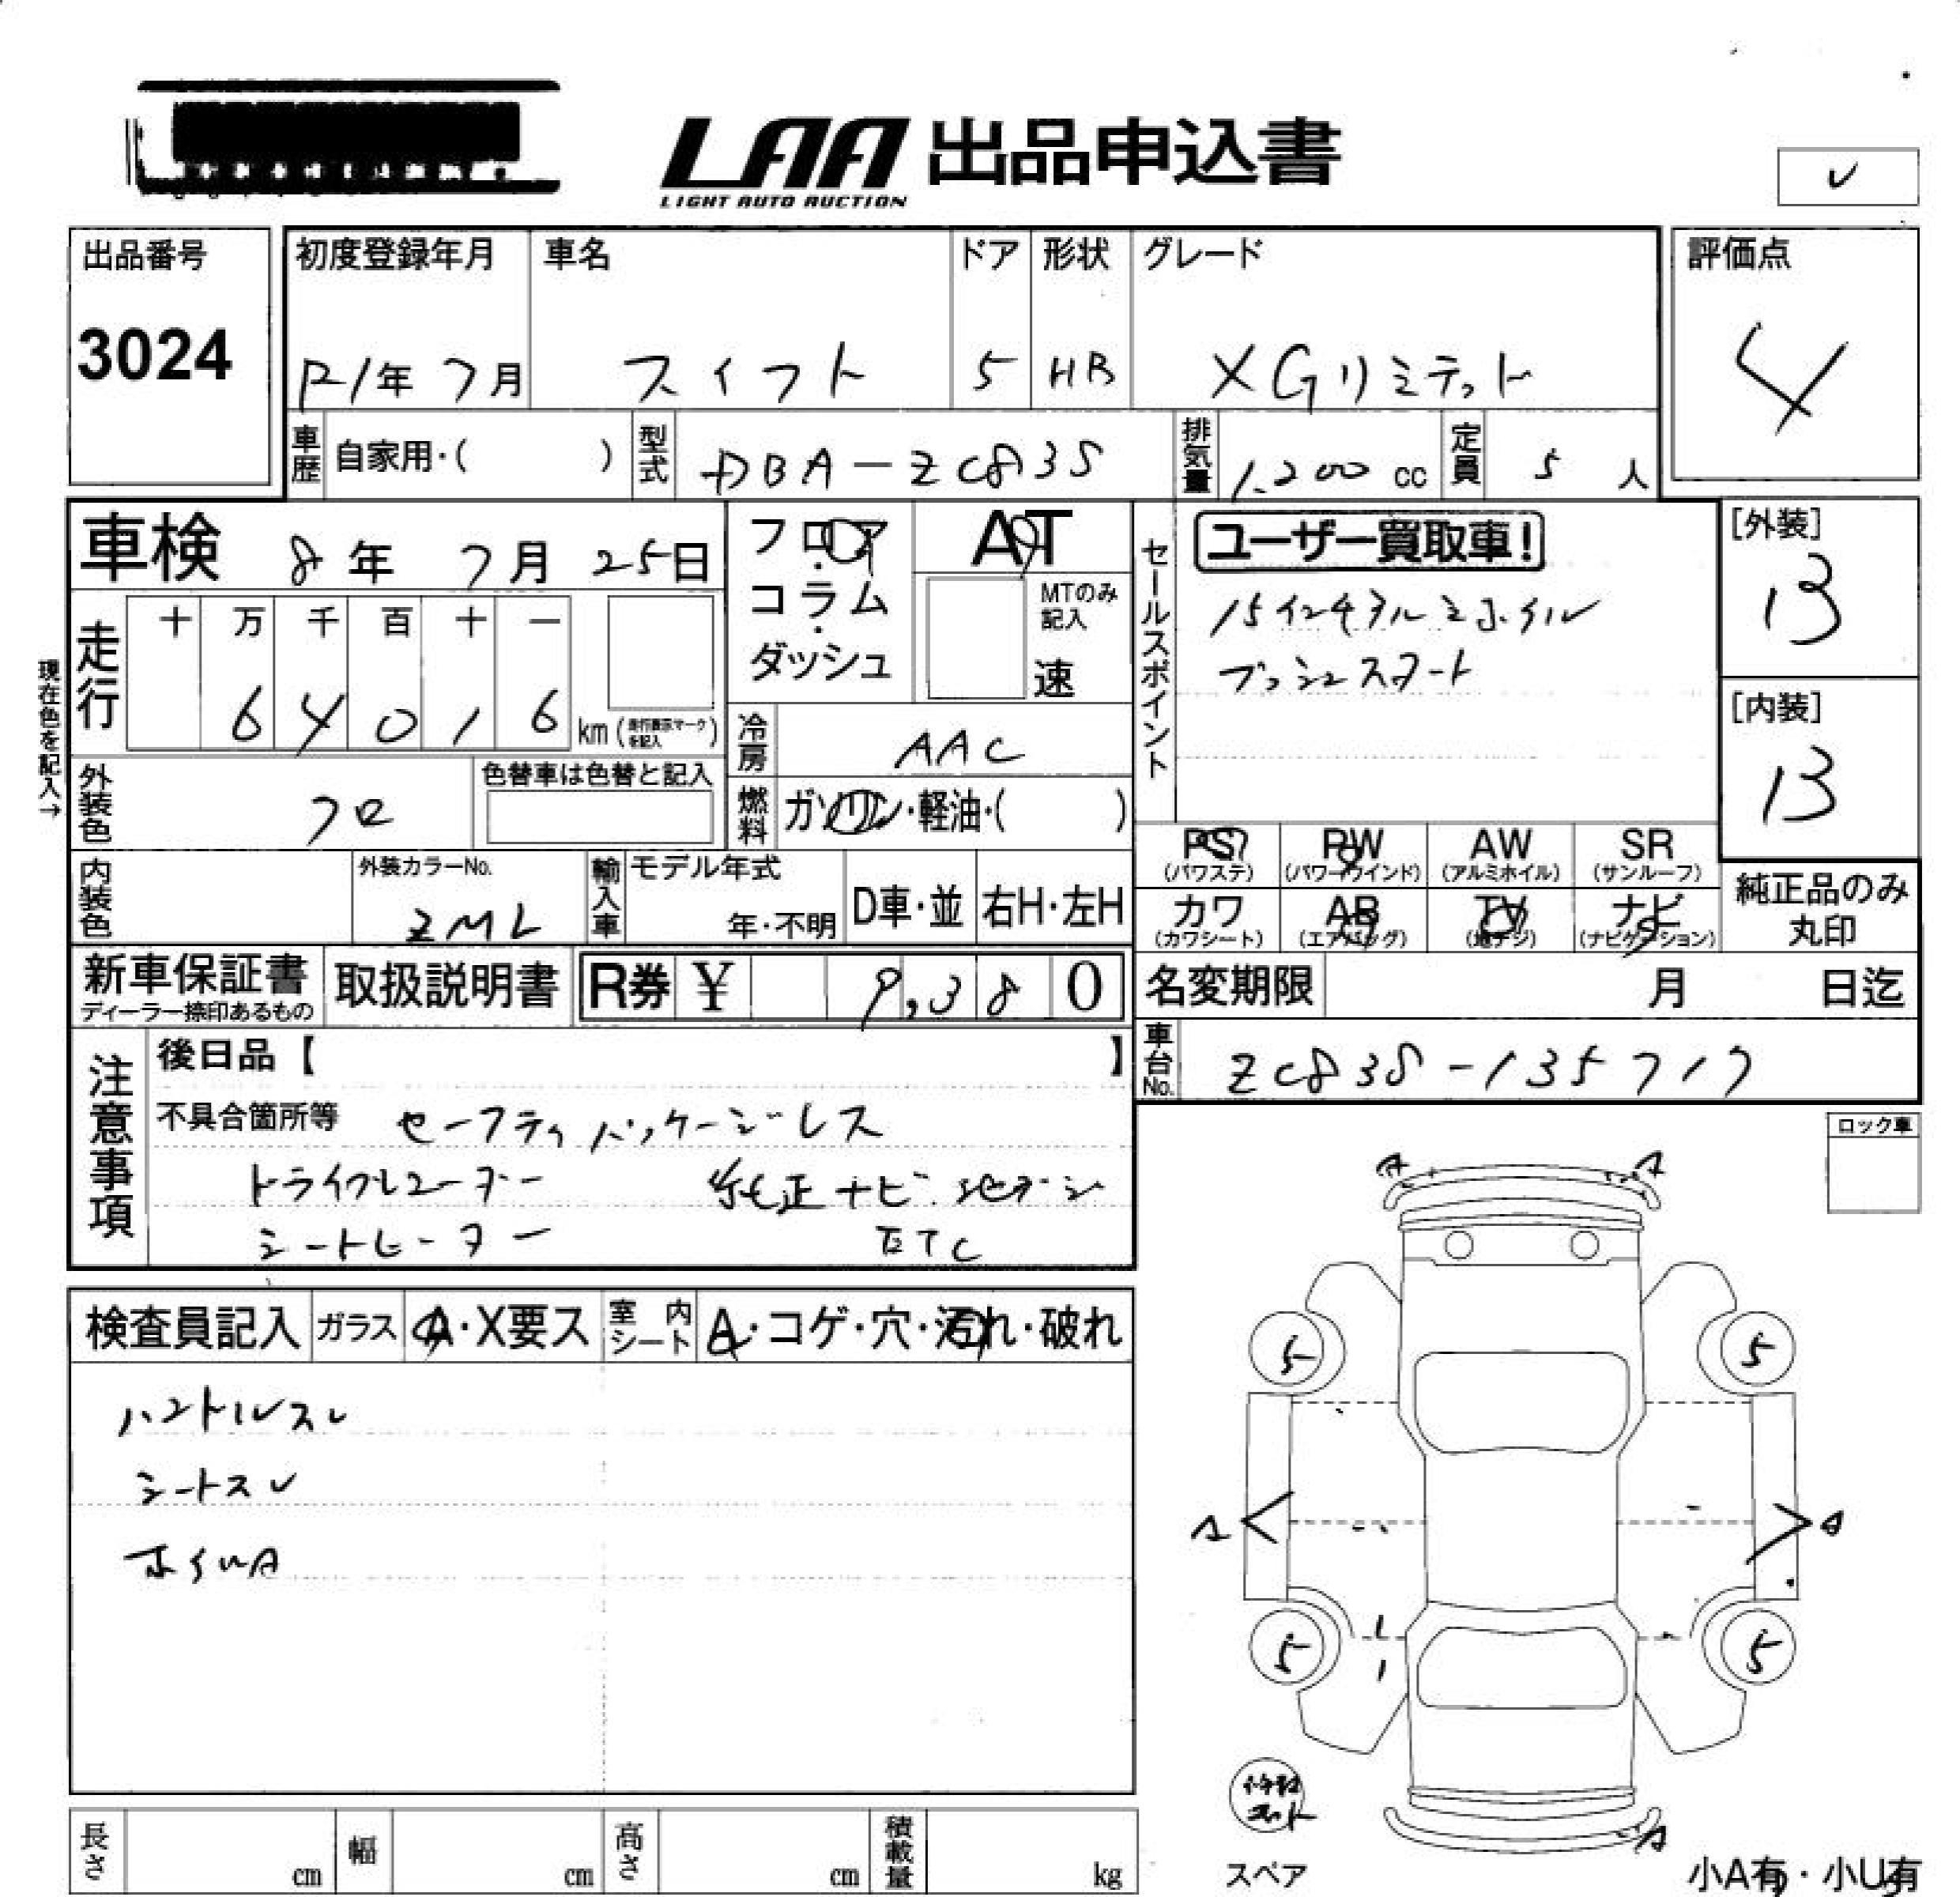 LAA 出品申込書
LIGHT AUTO AUCTION
✓
出品番号
3024
初度登録年月
R1年 7月
車名
スイフト
ドア
5
形状
HB
グレード
XGリミテッド
評価点
4
車歴
自家用・( )
型式
DBA-ZC83S
排気量
1.200 cc
定員
5 人
車検 8年 7月 25日
フロア・コラム・ダッシュ
AT
MTのみ記入
速
セールスポイント
ユーザー買取車!
15インチアルミホイル
プッシュスタート
[外装]
B
[内装]
B
現在色を記入→
走行
十 万 千 百 十 一
6 4 0 1 6
km(走行表示マークを記入)
冷房
AAC
外装色
クロ
色替車は色替と記入
燃料
ガソリン・軽油・( )
PS (パワステ)
PW (パワーウインド)
AW (アルミホイル)
SR (サンルーフ)
カワ (カワシート)
AB (エアバッグ)
TV (地デジ)
ナビ (ナビゲーション)
純正品のみ丸印
内装色
外装カラーNo.
ZML
輸入車
モデル年式
年・不明
D車・並
右H・左H
新車保証書
ディーラー捺印あるもの
取扱説明書
R券 ¥ 9,380
名変期限 月 日迄
車台No.
ZC83S-135717
注意事項
後日品【 】
不具合箇所等 セーフティパッケージレス
ドライブレコーダー 純正ナビ 地デジ
シートヒーター ETC
ロック車
検査員記入
ガラス A・X要ス
室内シート A・コゲ・穴・汚れ・破れ
ハンドルスレ
シートスレ
ホイルA
A A
5 5
A A
5 5
A
スペア
小A有・小U有
長さ cm
幅 cm
高さ cm
積載量 kg